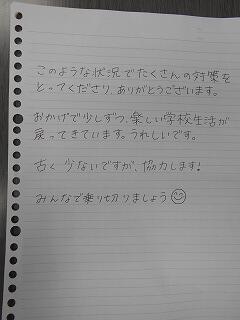 このような状況でたくさんの対策を
とってくださり、ありがとうございます。
おかげで少しずつ、楽しい学校生活が
戻ってきています。うれしいです。
古く 少ないですが、協力します!
みんなで乗り切りましょう